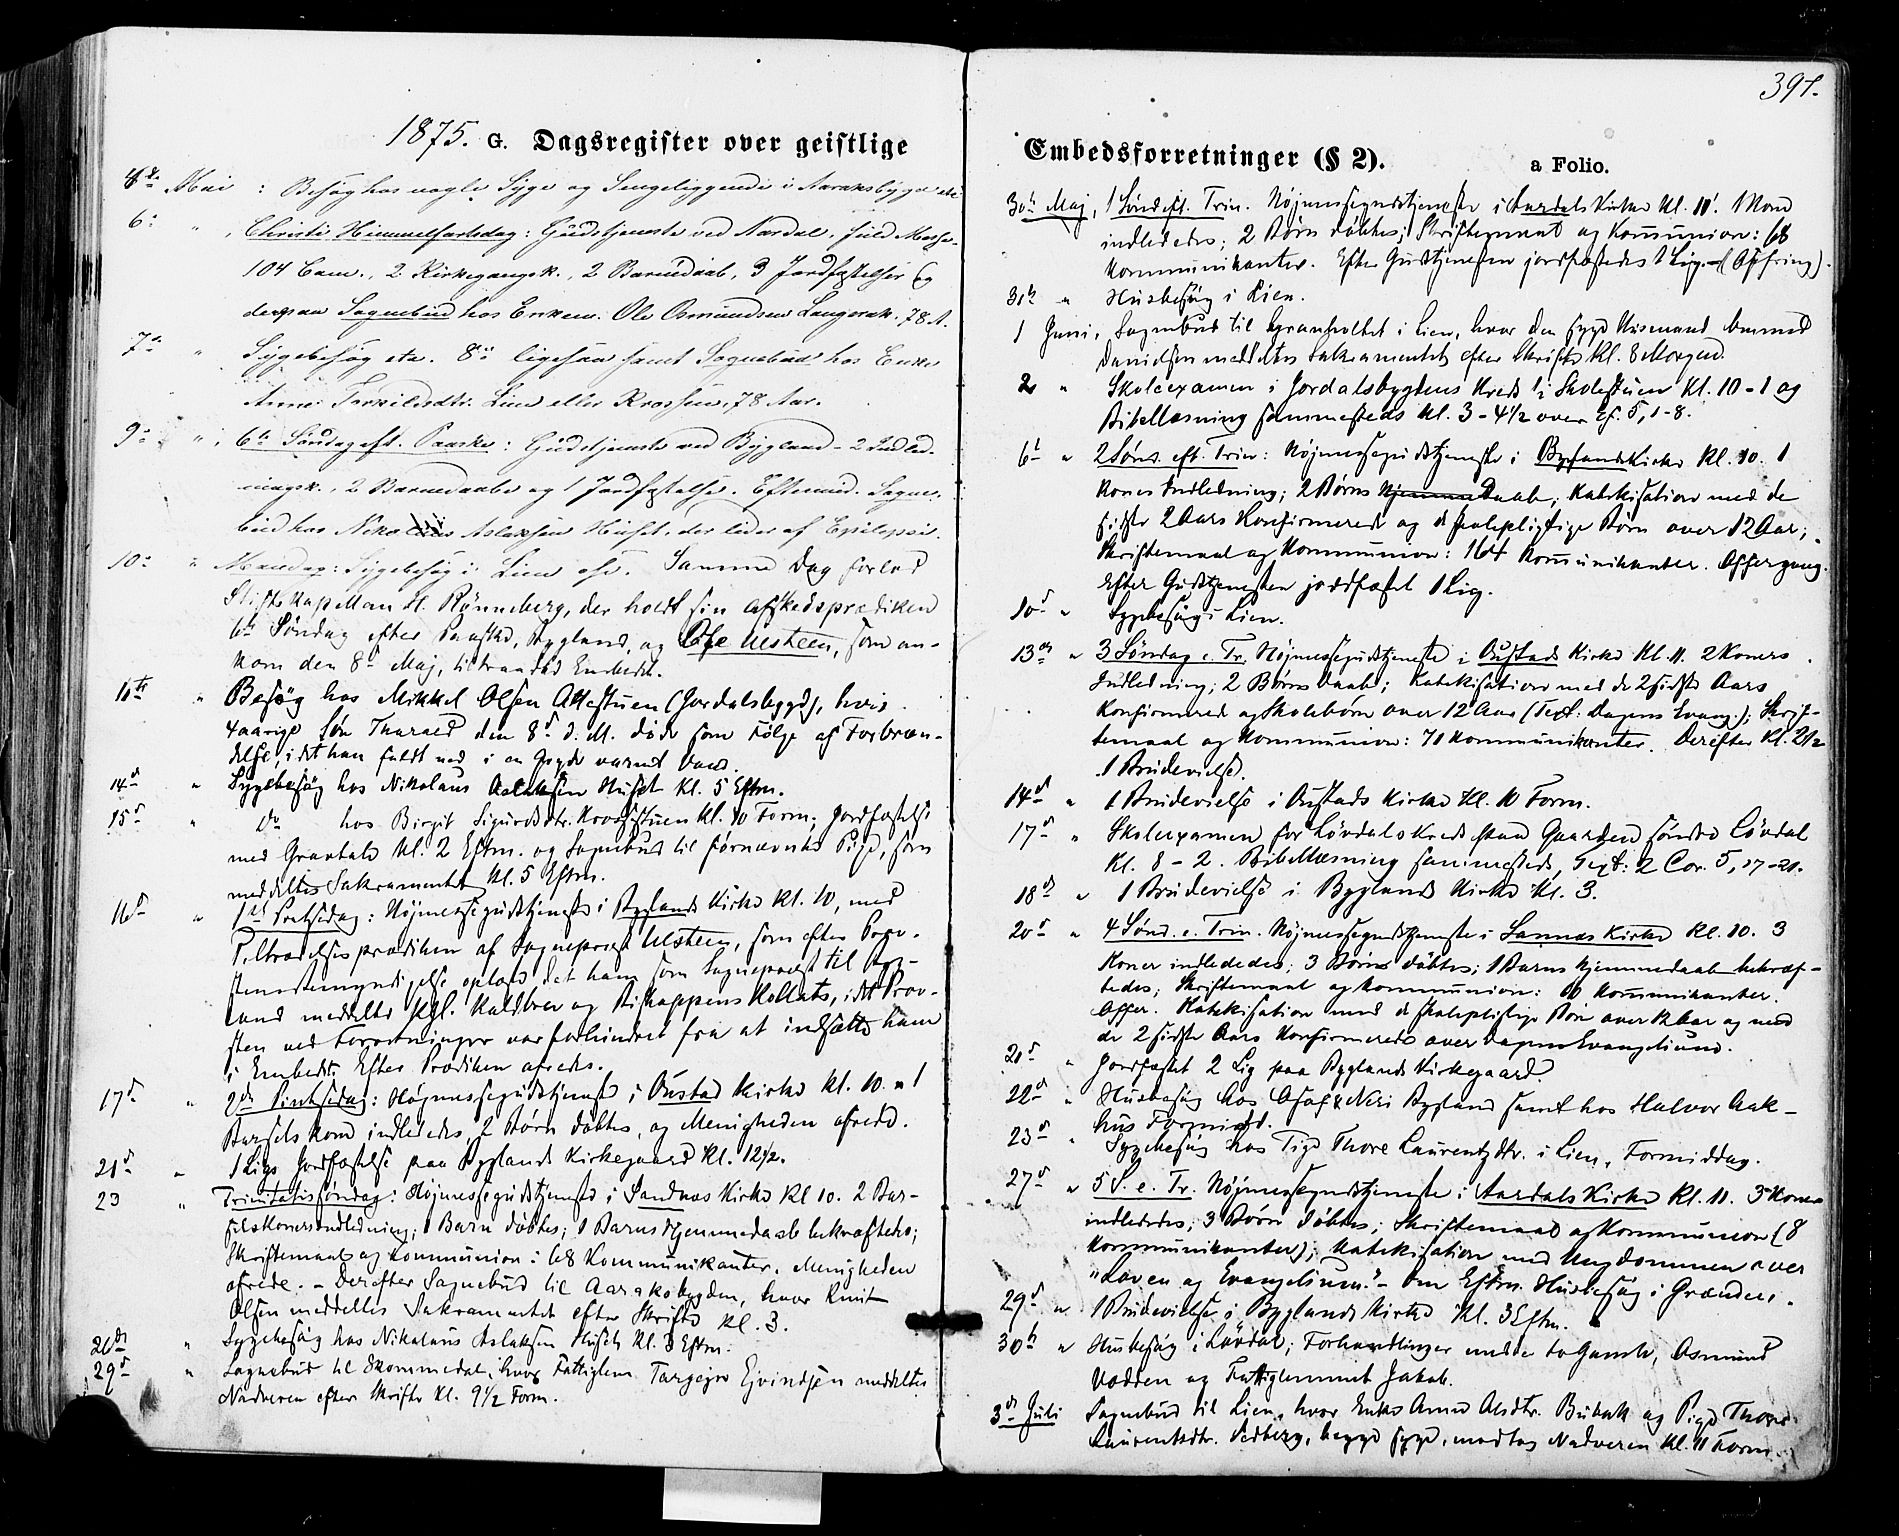 1875. G. Dagsregister over geistlige
4de Mai : Besøg hos nogle Syge og Sengeliggende i Aaraksbygd etc
6te " , Christi Himmelfartsdag: Gudstjeneste ved Aardal. fuld Messe.
104 Com., 2 Kirkegangsk., 2 Barnedaab, 3 Jordfæstelser og
derpaa Sognebud hos Enken: Ole Osmundsen Langerak, 78 A.
7de " Sygebesøg etc. 8de ligesaa samt Sognebud hos Enke
Anne Torkildsdtr. Lien eller Krossen, 78 Aar.
9de " , 6te Søndag eft. Paaske: Gudstjeneste ved Bygland - 2 Indled-
ningsk., 2 Barnedaabe og 1 Jordfæstelse. Eftermd. Sogne-
bud hos Nikolaus Aslaksen Huset, der lider af Epilepsi.
10de " Mandag: Sygebesøg i Lien osv. Samme Dag forlod
Stiftskapellan H. Rönneberg, der holdt sin afskedsprædiken
6te Søndag efter Paaske, Bygland, og Ole Ulsteen, som an-
kom den 8de Maj, tiltraadte Embedet.
11te " Besøg hos Mikkel Olsen Attestuen (Jordalsbygd), hvis
4aarige Søn Tharald den 8de d. M. døde som Følge af Forbræn-
delse, idet han faldt ned i en Gryde varmt Vand.
14de " Sygebesøg hos Nikolaus Aslaksen Huset Kl. 5 Eftm.
15de " Do hos Birgit Sigurdsdtr. Krossstuen Kl. 10 Form; Jordfæstelse
med Gravtale Kl. 2 Eftm. og Sognebud til førnævnte Pige, som
meddeltes Sakramentet Kl. 5 Eftm.
16de " 1ste Pintsedag: Højmessegudstjeneste i Byglands Kirke Kl. 10, med
Tiltrædelsesprædiken af Sognepræst Ulsteen, som efter Prov-
stens Bemyndigelse oplæste det ham som Sognepræst til Byg-
land meddelte kgl. Kaldbrev og Biskoppens Kollats, idet Prov-
sten ved Forretninger var forhindret fra at indsætte ham
i Embedet. Efter Prædiken ofredes.
17de " 2den Pintsedag: Højmessegudstjeneste i Oustad Kirke Kl. 10. 1
Barselskone indlededes, 2 Børn døbtes, og Menigheden ofrede.
21de " 1 Ligs Jordfæstelse paa Byglands Kirkegaard Kl. 12½.
23 " Trinitatissøndag: Højmessegudstjeneste i Sandnæs Kirke Kl 10. 2 Bar-
selskoners Indledning; 1 Barn døbtes; 1 Barns Hjemmedaab bekræftedes;
Skriftemaal og Kommunion: 68 Kommunikanter. Menigheden
ofrede. - Derefter Sognebud til Aaraksbygden, hvor Knut
Olsen meddeltes Sakramentet efter Skrifte Kl. 3.
26de " Sygebesøg hos Nikolaus Aslaksen Huset Kl. 3 Eftm.
29de " Sognebud til Skommedal, hvor Fattiglem Targejer Ejvindsen meddeltes
Nadveren efter Skrifte Kl. 9½ Form.
397.
Embedsforretninger (§ 2). a Folio.
30te Maj, 1 Sønd. eft. Trin. Højmessegudstjeneste i Aardals Kirke Kl. 11. 1 Kone
indlededes; 2 Børn døbtes; Skriftemaal og Kommunion: 68
Kommunikanter. Efter Gudstjenesten jordfæstedes 1 Lig. (Ofring).
31te " Husbesøg i Lien.
1 Juni, Sognebud til i Lien, hvor den syge Husmand
Danielsen meddeltes Sakramentet efter Skrifte Kl. 8 Morgen.
2 " Skoleexamen i Jordalsbygdens Kreds i Skolestuen Kl. 10-1 og
Bibellæsning sammesteds Kl. 3-4½ over Ef. 5, 1-8.
6te " 2 Sønd. eft. Trin: Højmessegudstjeneste i Byglands Kirke Kl. 10. 1
Kones Indledning; 2 Børns Daab; Katekisation med de
sidste 2 Aars Konfirmerede og skolepligtige Børn over 12 Aar;
Skriftemaal og Kommunion: 164 Kommunikanter. Offergang.
Efter Gudstjenesten jordfæstet 1 Lig.
10de " Sygebesøg i Lien.
13de " 3 Søndag e. Tr. Højmessegudstjeneste i Oustads Kirke Kl 11. 2 Koners
Indledning; 2 Børns Daab; Katekisation med de 2 sidste Aars
Konfirmerede og Skolebørn over 12 Aar (Text: Dagens Evang.); Skrif-
temaal og Kommunion: 71 Kommunikanter. Derefter Kl. 2½
1 Brudevielse.
14de " 1 Brudevielse i Oustads Kirke Kl. 10 Form.
17de " Skoleexamen for Lövdals Kreds paa Gaarden søndre Lövdal
Kl. 8 - 2. Bibellæsning sammesteds, Text: 2 Cor. 5, 17-21.
18de " 1 Brudevielse i Byglands Kirke Kl. 3.
20de " 4 Sønd. e. Trin. Højmessegudstjeneste i Sannæs Kirke Kl. 10. 3
Koner indlededes; 3 Børn døbtes; 1 Barns Hjemmedaab bekræf-
tedes; Skriftemaal og Kommunion: 60 Kommunikanter.
Offer. Katekisation med de skolepligtige Børn over 12 Aar og med
de 2 sidste Aars Konfirmerede over Dagens Evangelium.
21de " Jordfæstet 2 Lig paa Byglands Kirkegaard.
22de " Husbesøg hos Neri Bygland samt hos Halvor Aak-
hus Formidd.
23de " Sygebesøg hos Pige Thore Laurentzdtr. i Lien, Formiddag.
27de " 5 S. e. Tr. Højmessegudstjeneste i Aardals Kirke Kl. 11. 3 Koner
indlededes; 3 Børn døbtes; Skriftemaal og Kommunion (8
Kommunikanter); Katekisation med Ungdommen over
"Loven og Evangelium." - Om Eftm. Husbesøg i Grænden.
29de " 1 Brudevielse i Byglands Kirke Kl. 3 Eftm.
30te " Husbesøg i Lövdal; Forhandlinger mellem to Gamle, Osmund
Vodden og Fattiglemmet Jakob.
3de Juli Sognebud til Lien, hvor Enke Anne Alsdtr. Bubak og Pige Thore
Laurentsdtr. Sedberg, begge syge, modtog Nadveren Kl. 11 Form.